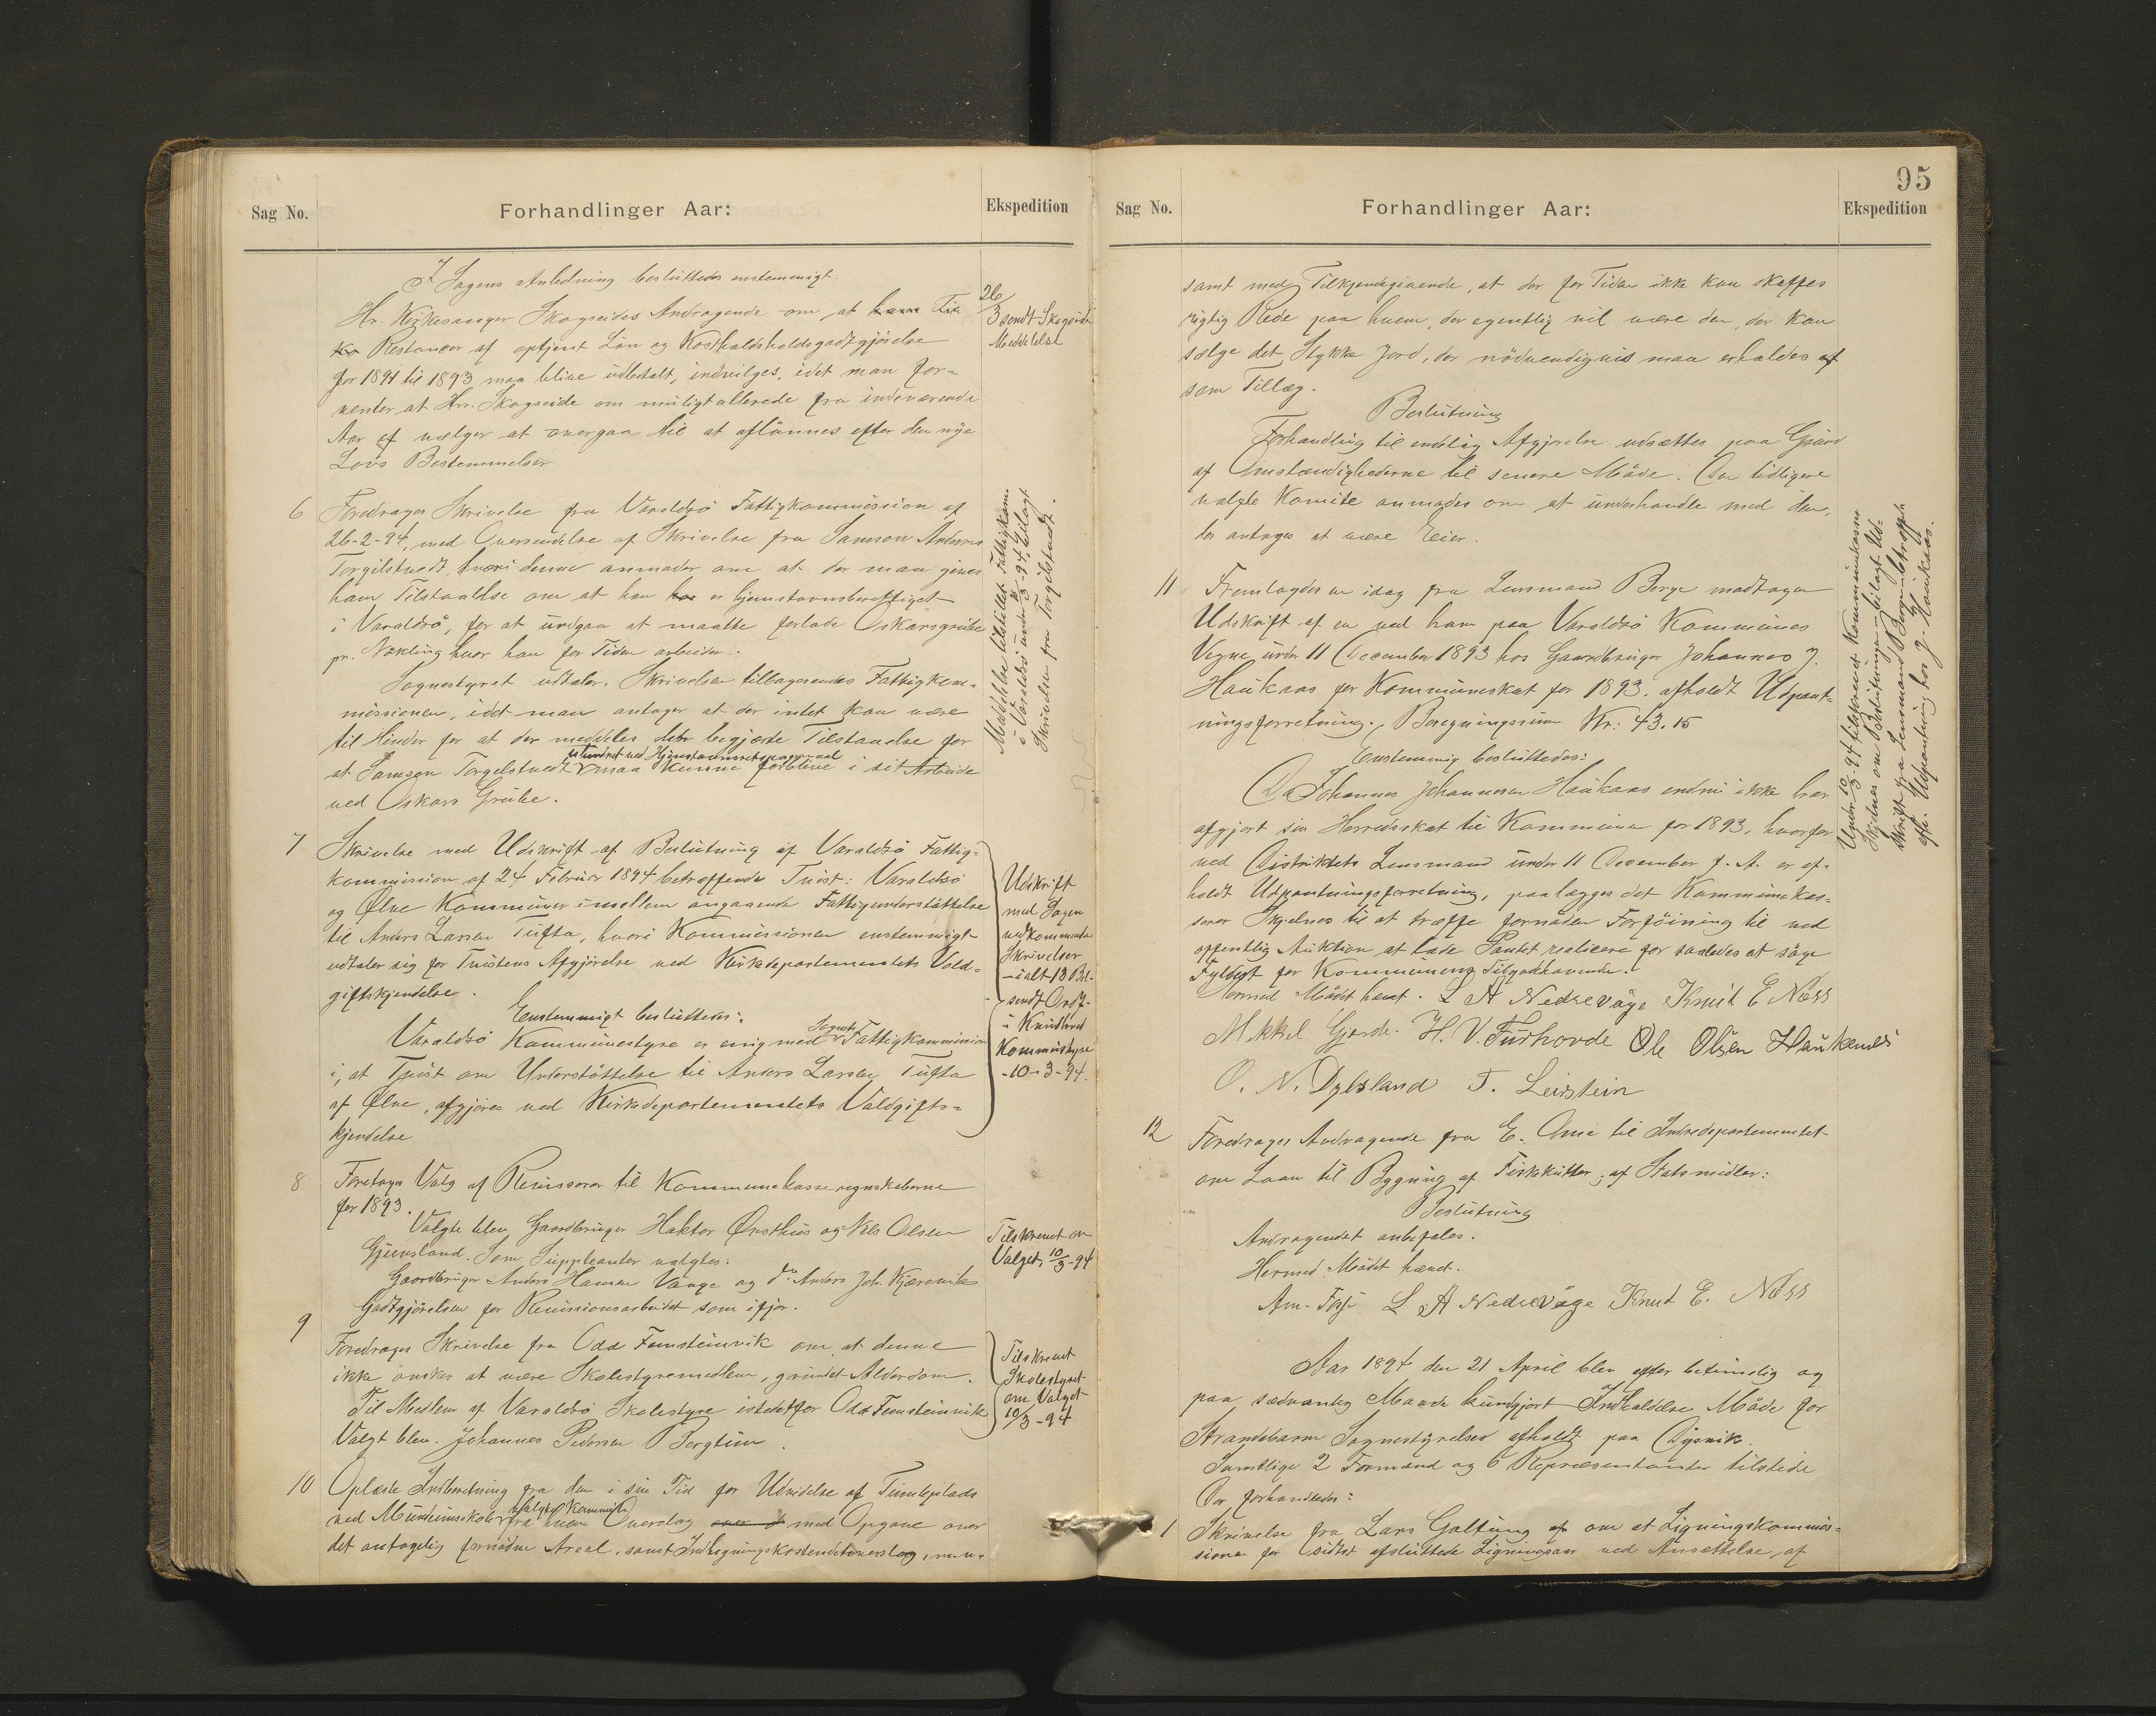 Sag No.
Forhandlinger Aar:
Ekspedition
I Sagens Anledning besluttedes enstemmigt:
Hr. Kirkesanger Skogseides Andragende om at
Restancer af optjent Løn og Kostholdsholdsgodtgjörelse
for 1891 til 1893 maa blive udbetalt, indvilges, idet man for=
venter at Hr. Skogseide om muligt allerede fra indeværende
Aar af vælger at overgaa til at aflönnes efter den nye
Lovs Bestemmelser
26/3 sendt Skogseide
Meddelelse
6 Foredrages Skrivelse fra Varaldsö Fattigkommission af
26-2-94, med Oversendelse af Skrivelse fra Samson Anderss
Torgilstvedt, hvori denne anmoder om at der maa gives
ham Tilstaaelse om at han har er hjemstavnsberettiget
i Varaldsö, for at undgaa at maatte forlade Oskarsgrube
pr. Nøkling hvor han for Tiden arbeider.
Sognestyret udtaler. Skrivelsen tilbagesendes Fattigkom-
missionen, idet man antager at der intet kan være
til Hinder for at der meddeles den begjærte Tilstaaelse for
uhindret ved Hjemstavnsretsspørgsmaal
at Samson Torgelstvedt maa kunne forblive i sit Arbeide
ved Oskars Grube.
Meddelelse tilstillet Fattigkom.
i Varaldsö under 10/3-94, bilagt
Skrivelsen fra Torgelstvedt.
7 Skrivelse med Udskrift af Beslutning af Varaldsö Fattig-
kommission af 24 Februar 1894 betræffende Tvist: Varaldsö
og Ølve Kommuner imellem angaaende Fattigunderstöttelse
til Anders Larsen Tufta, hvori Kommissionen enstemmigt
udtaler sig for Tvistens Afgjörelse ved Kirkedepartementets Vold=
giftskjendelse.
Enstemmigt besluttedes:
Varaldsö Kommunestyre er enig med Sognets Fattigkommission
i, at Tvist om Understöttelse til Anders Larsen Tufta
af Ølve, afgjöres ved Kirkedepartementets Voldgifts=
kjendelse
Udskrift
med Sagen
vedkommende
Skrivelser
- ialt 13 Bil-
sendt Ordf.
i Kvidhered
Kommunstyre
-10-3-94.
8 Foretages Valg af Revisorer til Kommunekasseregnskaberne
for 1893.
Valgte blev, Gaardbruger Haktor Øvsthus og Nils Olsen
Gjuvsland. Som Suppleanter valgtes:
Gaardbruger Anders Hansen Vange og do. Anders Joh. Kjærevik
Godtgjörelsen for Revisionsarbeidet som ifjor.
Tilskrevet om
Valget 10/3-94
9
Foredrages Skrivelse fra Odd Femsteinvik om at denne
ikke önsker at være Skolestyremedlem, grundet Alderdom.
Til Medlem af Varaldsö Skolestyre istedetfor Odd Femsteinvik
Valgt blev. Johannes Pedersen Bergtun.
Tilskrevet
Skolestyret
om Valget
10/3-94
10 Oplæstes Indberetning fra den i sin Tid for Udvidelse af Tunlepladsen
valgte Kommite
ved Mundheimsskole fra hvem Overslag over d med Opgave over
det antagelig fornødne Areal, samt Indhegningskostendeoverslag, m.v.
95
Sag No.
Forhandlinger Aar:
Ekspedition
samt med Tilkjendegivende, at der for Tiden ikke kan skaffes
rigtig Rede paa hvem, der egentlig vil være den, der kan
sælge det Stykke Jord, der nödvendigvis maa erholdes af
som Tillæg.
Beslutning
Forhandling til endelig Afgjørelse udsættes paa Grund
af Omstændighederne til senere Möde. Den tidligere
valgte Komite anmodes om at underhandle med den,
der antages at være Eier.
11 Fremlagdes en idag fra Lensmand Berge modtagen
Udskrift af en ved ham paa Varaldsö Kommunes
Vegne under 11 December 1893 hos Gaardbruger Johannes J.
Haukaas for Kommuneskat for 1893. afholdt Udpant-
ningsforretning. Beregningssum Kr: 43.15
Enstemmig besluttedes:
Da Johannes Johannesen Haukaas endnu ikke har
afgjort sin Herredsskat til Kommunen for 1893, hvorfor
ved Distriktets Lensmand under 11 December f. A. er af-
holdt Udpantningsforretning, paalægges det Kommunekas-
serer Skjelnes til at træffe fornöden Forföining til ved
offentlig Auktion at lade Pantet realisere for saaledes at söge
Fyldest for Kommunens Tilgodehavende.
Hermed Mödet hævet. L A Nedrevåge Knut E Næss
Mikkel Gjerde. H. V. Furhovde Ole Olsen Haukenes
O. N. Dybsland T. Leirstein
Under 10/3-94 tilskrevet Kommunekasserer
Skjelnes om Beslutningen - bilagt Ud-
skrift fra Lensmand Berge betræffende
afh. Udpantning hos J. Haukaas.
12 Foredrages Andragende fra E. Ome til Indredepartementet
om Laan til Bygning af Fiskekutter, af Statsmidler:
Beslutning
Andragendet anbefales.
Hermed Mödet hævet.
L A Nedrevåge Knut E. Næss
Aar 1894 den 21 April blev efter betimelig og
paa sædvanlig Maade kundgjort Indkaldelse af Möde for
Strandebarm Sognestyrelse afholdt paa Dysvik.
Samtlige 2 Formænd og 6 Repræsentanter tilstede
Der forhandledes:
1 Skrivelse fra Lars Galtung af om at Ligningskommis=
sionen for sidst afsluttede Ligningsaar ved Ansættelse, af